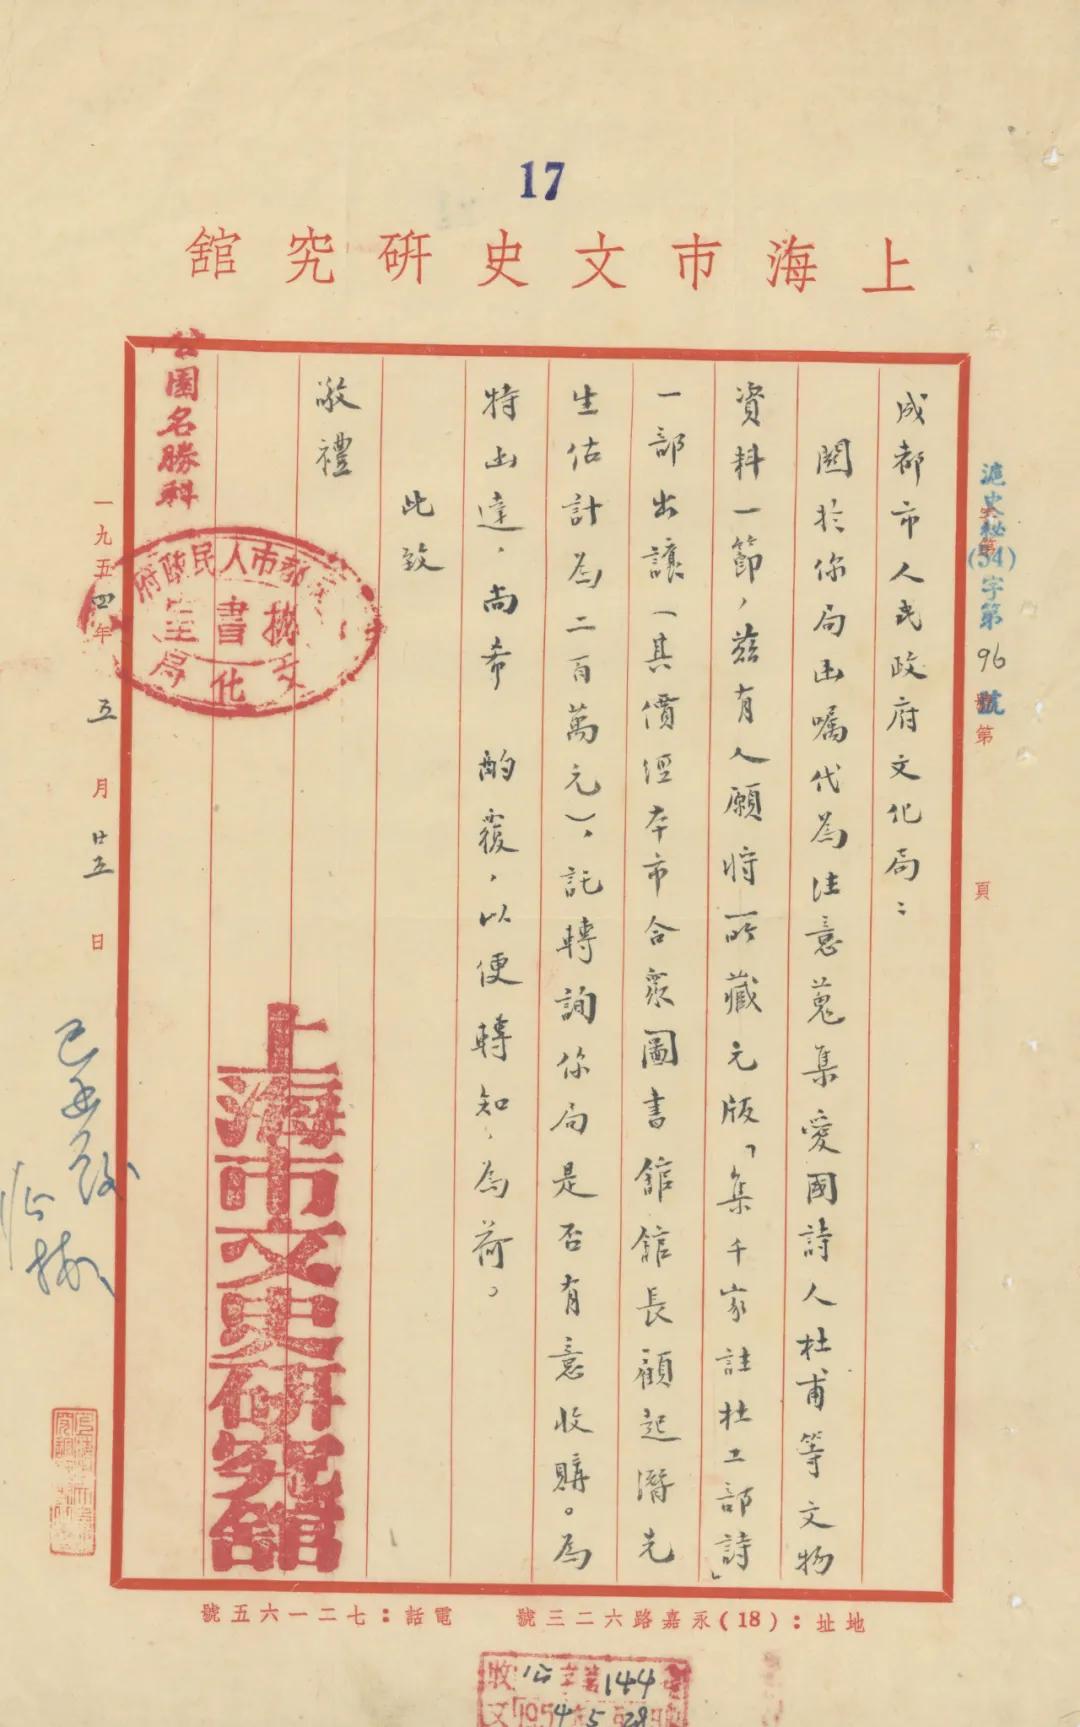 17
上海市文史研究舘
滬史秘(54)字第96號
第 頁
成都市人民政府文化局：
關於你局函嘱代爲注意蒐集愛國詩人杜甫等文物
資料一節，兹有人願將所藏元版「集千家註杜工部詩」
一部出讓（其價經本市合衆圖書舘舘長顧起潛先
生估計爲二百萬元），託轉詢你局是否有意收購。爲
特函達，尚希 酌覆，以便轉知，爲荷。
此致
敬禮
上海市文史研究舘
公園名勝科
都市人民政府
秘書室
文化局
一九五四年五月廿五日
已函覆
地址：(18)永嘉路六二三號 電話：七二一六五號
收 公 字第144號
文 1954年5月28日